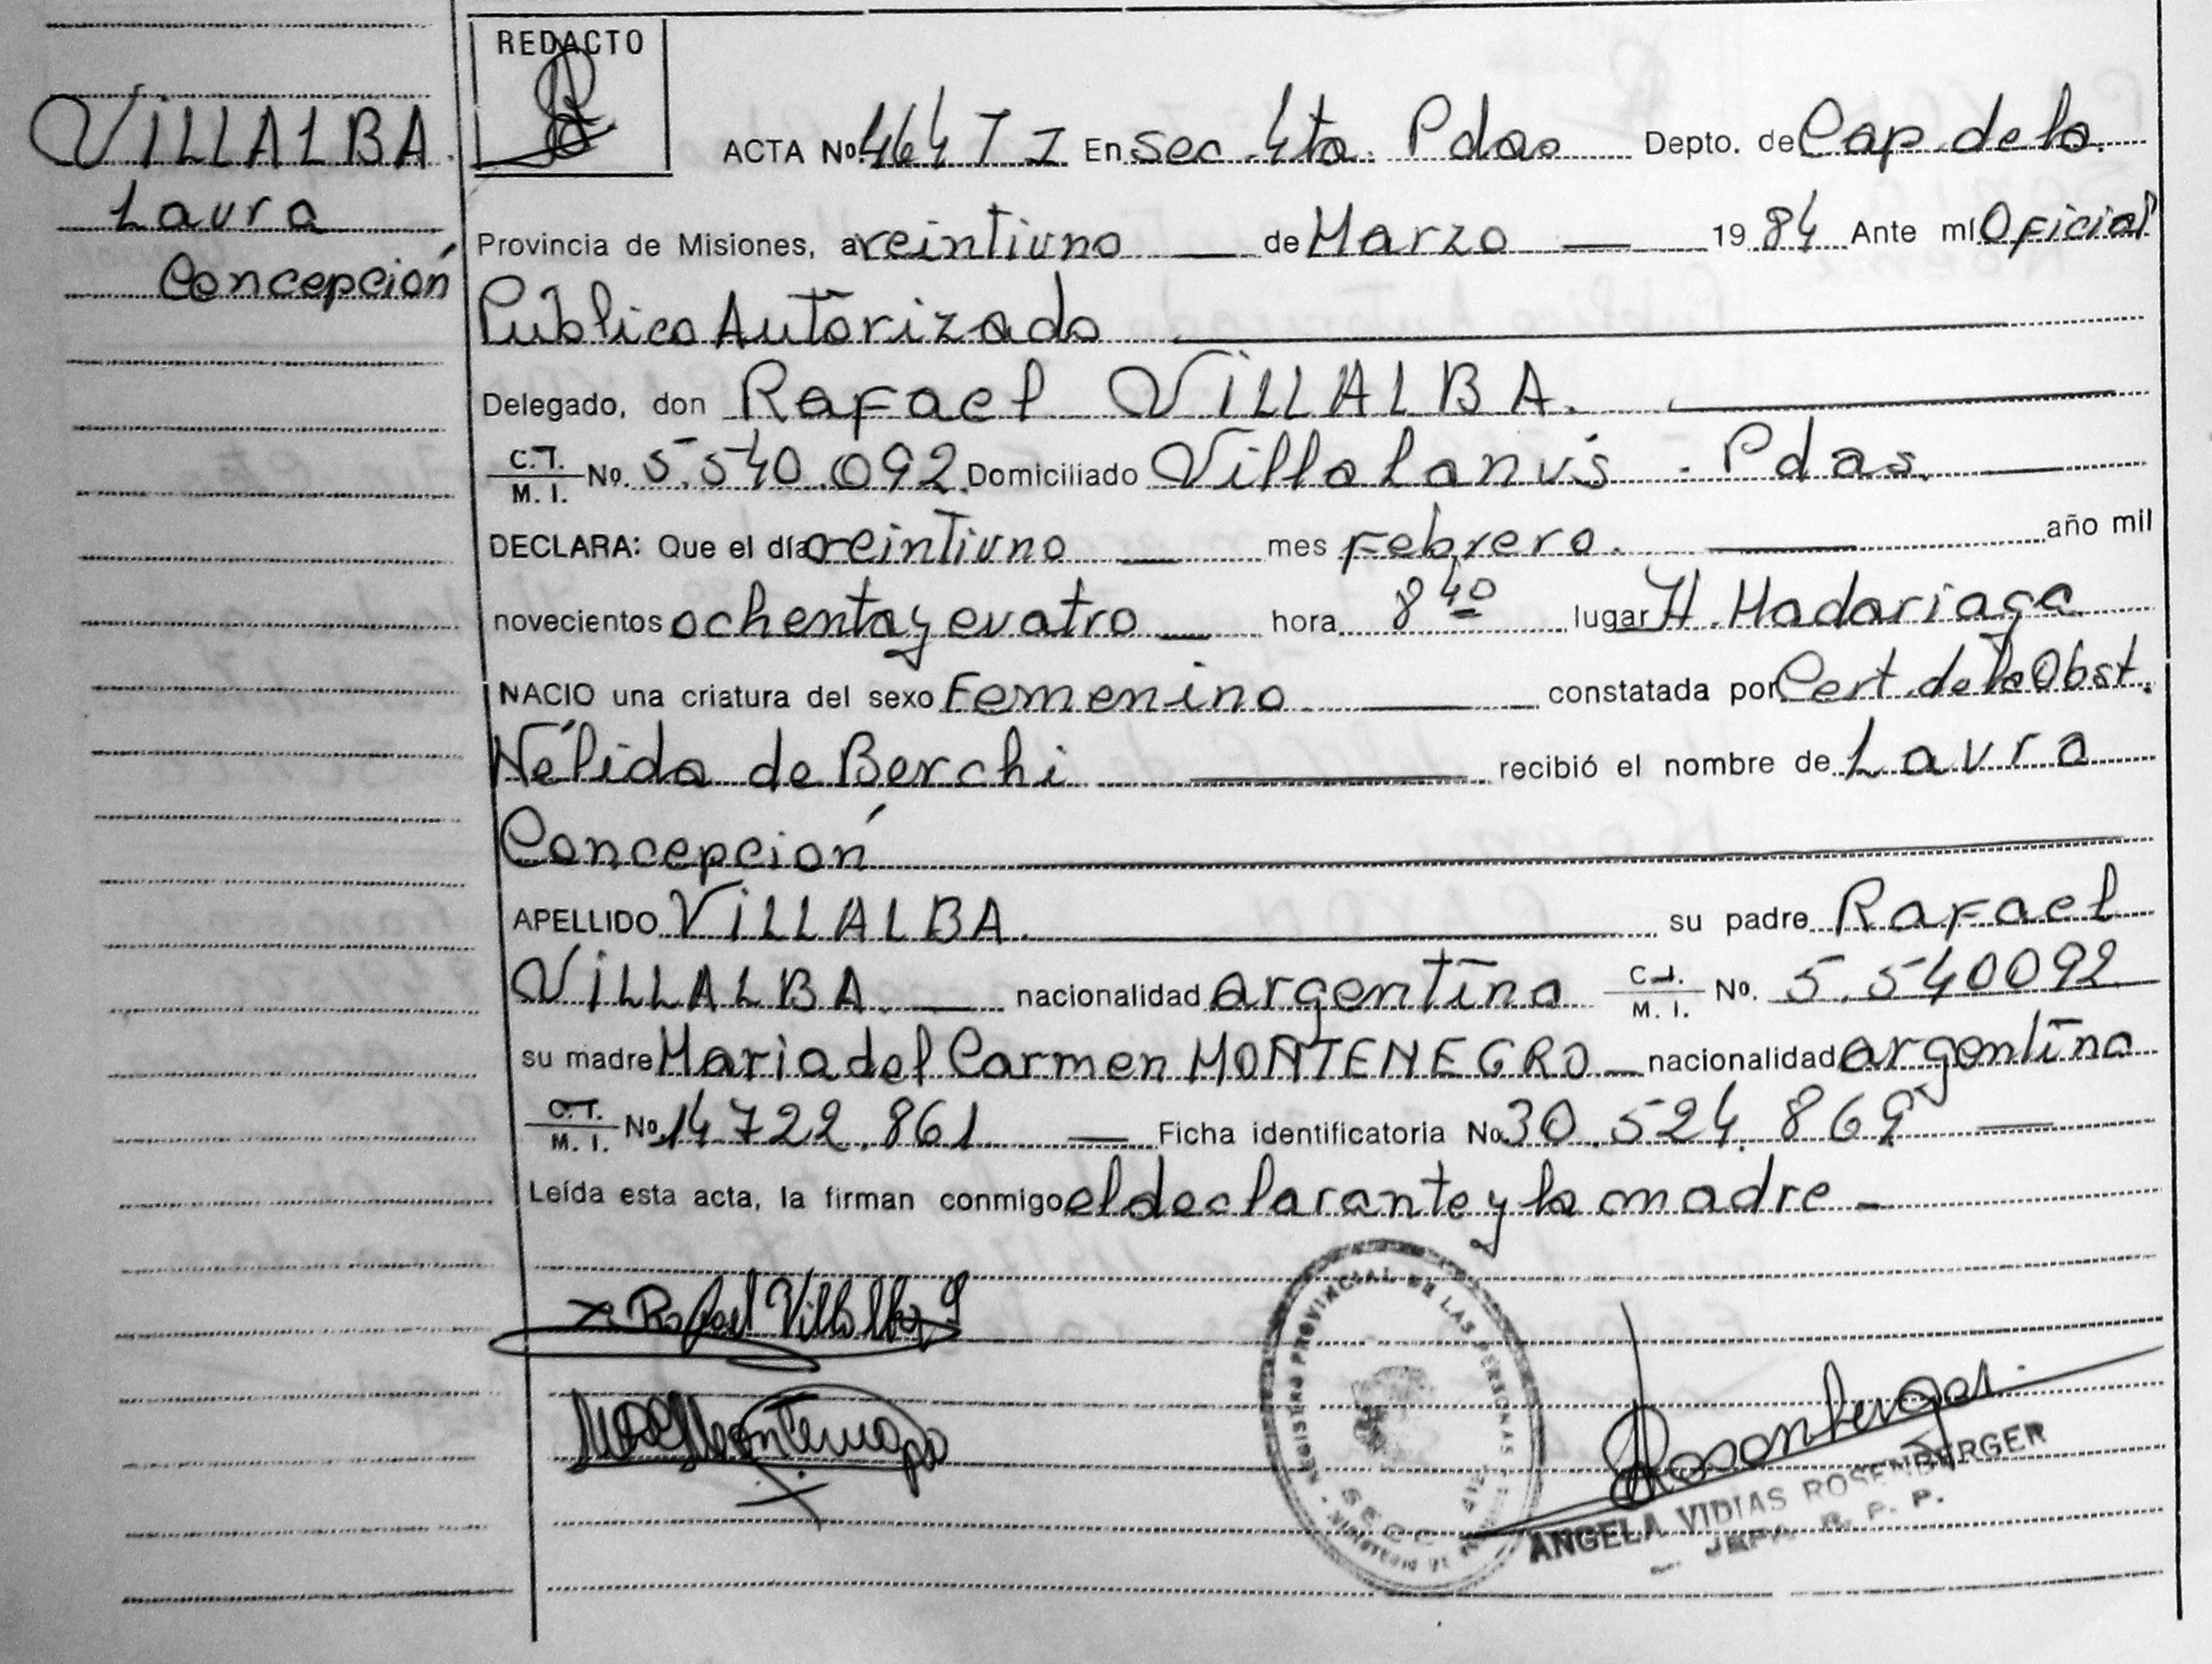 REDACTO
VILLALBA.
Laura
Concepción
ACTA Nº 464 T I En sec. 4ta. Pdas Depto. de Cap. de la.
Provincia de Misiones, a veintiuno de Marzo 1984 Ante mí Oficial
Público Autorizado
Delegado, don Rafael VILLALBA.
C.I. / M. I. Nº. 5.540.092 Domiciliado Villa Lanús - Pdas.
DECLARA: Que el día veintiuno mes Febrero. año mil
novecientos ochenta y cuatro hora 8 40 lugar H. Madariaga
NACIO una criatura del sexo Femenino constatada por Cert. de la Obst.
Nélida de Berchi recibió el nombre de Laura
Concepción
APELLIDO VILLALBA. su padre Rafael
VILLALBA nacionalidad argentina C.I. / M. I. Nº. 5.540092
su madre Maria del Carmen MONTENEGRO nacionalidad argentina
C.I. / M. I. Nº 14722.861 Ficha identificatoria Nº 30.524.869
Leída esta acta, la firman conmigo el declarante y la madre -
Rafael Villalba
REGISTRO PROVINCIAL DE LAS PERSONAS
SECC
ANGELA VIDIAS ROSENBERGER
R. P. P.